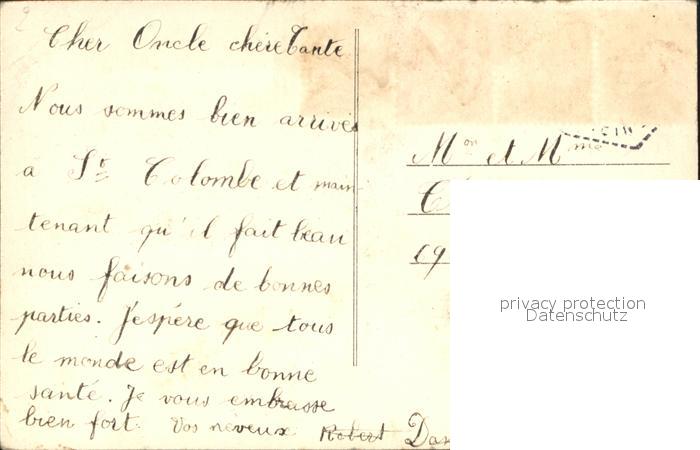 Cher Oncle chère Tante
Nous sommes bien arrivés
a St Colombe et main-
tenant qu'il fait beau
nous faisons de bonnes
parties. J'espère que tous
le monde est en bonne
santé. Je vous embrasse
bien fort. Vos neveux Robert Dan
Mon et Mme
19
privacy protection
Datenschutz